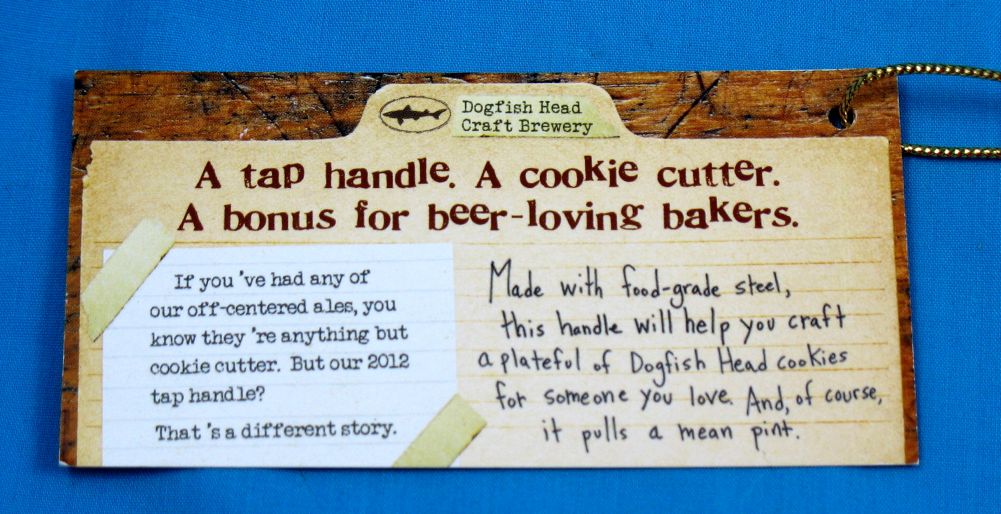 Dogfish Head
Craft Brewery
A tap handle. A cookie cutter.
A bonus for beer-loving bakers.
If you've had any of
our off-centered ales, you
know they're anything but
cookie cutter. But our 2012
tap handle?
That's a different story.
Made with food-grade steel,
this handle will help you craft
a plateful of Dogfish Head cookies
for someone you love. And, of course,
it pulls a mean pint.